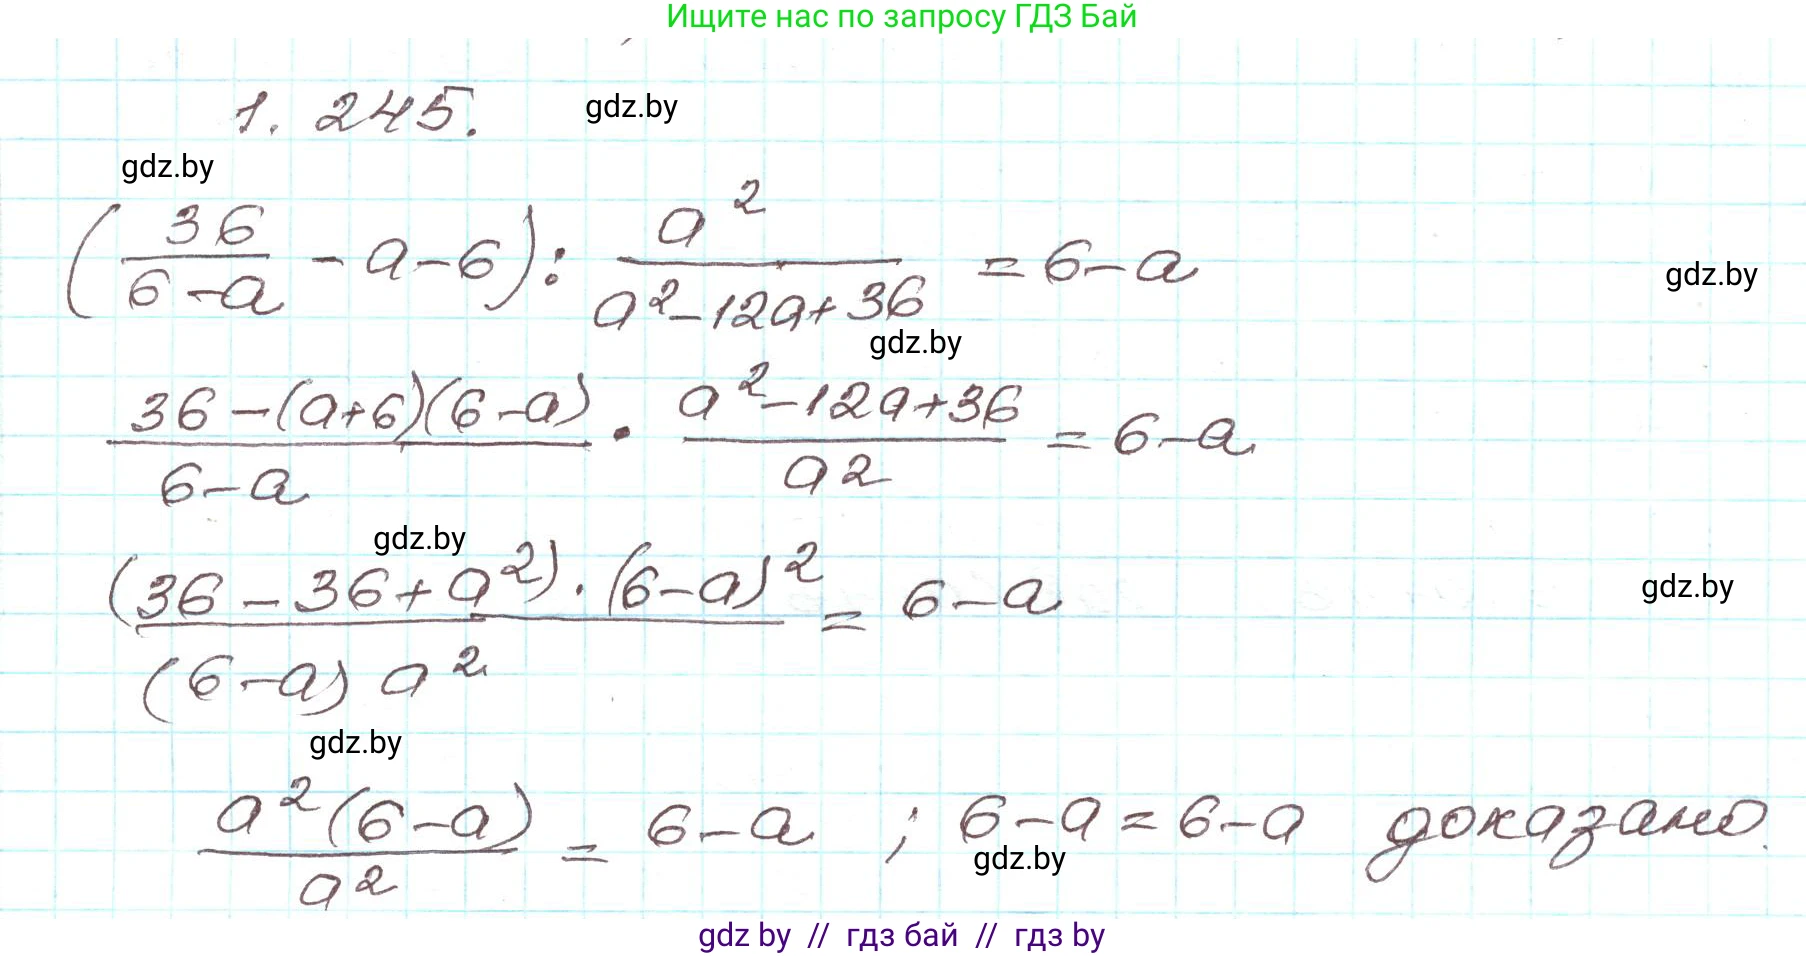 Ищите нас по запросу ГДЗ Бай
1. 245.
gdz.by
gdz.by
(36/(6-a) - a - 6) : a²/(a²-12a+36) = 6-a
gdz.by
gdz.by
(36-(a+6)(6-a))/(6-a) · (a²-12a+36)/a² = 6-a
gdz.by
((36-36+a²)·(6-a)²)/((6-a) a²) = 6-a
gdz.by
gdz.by
a²(6-a)/a² = 6-a ; 6-a = 6-a доказано.
gdz.by
gdz by // гдз бай // гдз by